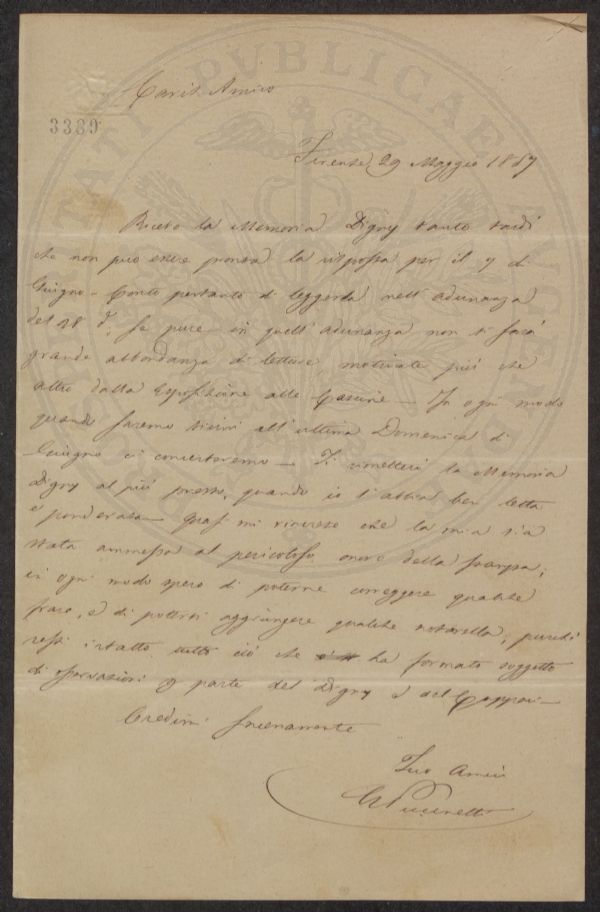 Caris.o Amico
3389
Firenze, 29 Maggio 1857
Ricevo la Memoria Digny tanto tardi
che non può essere pronta la risposta per il 7 di
Giugno – Conto pertanto di leggerla nell'adunanza
del 28 do, se pure in quell'adunanza non si farà
grande abbondanza di letture motivate più che
altro dalla Esposizione alle Cascine – In ogni modo
quando saremo vicini all'ultima Domenica di
Giugno ci concerteremo – Ti rimetterò la Memoria
Digny al più presto, quando io l'abbia ben letta
e ponderata – Quasi mi rincresce che la mia sia
stata ammessa al pericoloso onore della stampa;
in ogni modo spero di poterne correggere qualche
frase, e di potervi aggiungere qualche notarella, purché
resti intatto tutto ciò che ha formato soggetto
di osservazioni p parte del Digny e del Capponi –
Credimi sinceramente
Tuo Amico
PVBLICAE